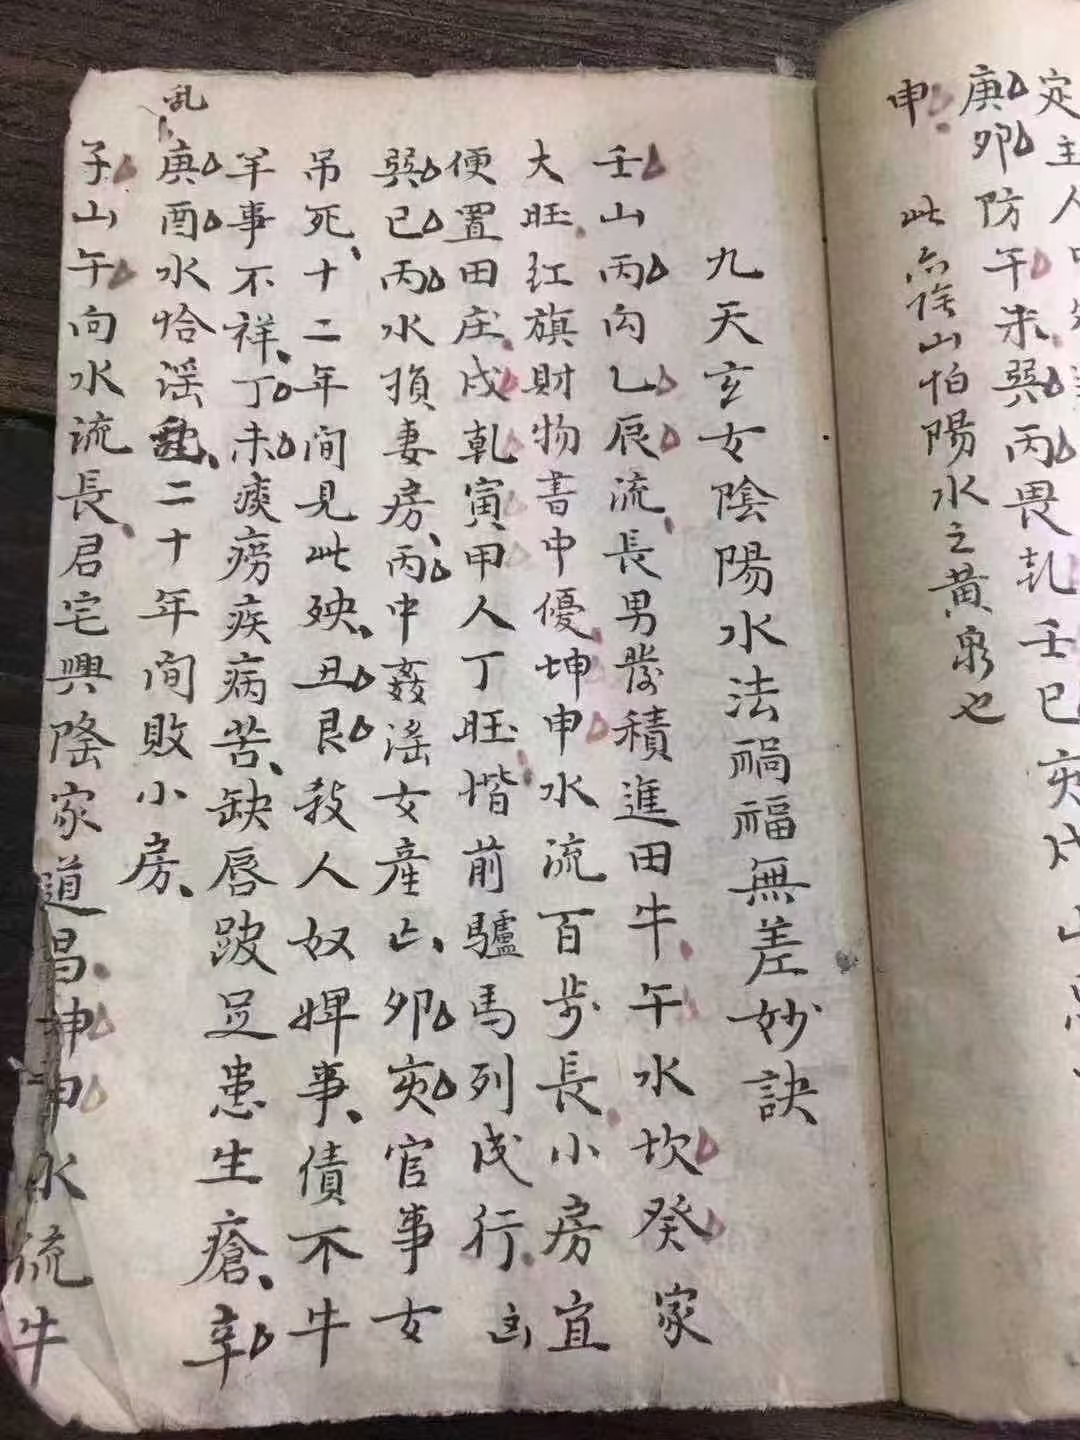 定主人口
庚卯防午未巽丙畏乹壬巳亥戌山
申 此山怕陽水之黃泉也
九天玄女陰陽水法禍福無差妙訣
壬山丙向乙辰流、長男發積進田牛、午水坎癸家
大旺、红旗財物書中優、坤申水流百步長、小房宜
便置田庄、戌乹寅甲人丁旺、堦前驢馬列成行、凶
巽巳丙水損妻房、丙中姦淫女產亡、卯亥官事女
吊死、十二年间見此殃、丑艮殺人奴婢事、債不牛
羊事不祥、丁未痰癆疾病苦、缺唇跛足患生瘡、辛
乱
庚酉水恰淫亂、二十年间敗小房、
子山午向水流長、君宅興隆家道昌、坤申水流牛